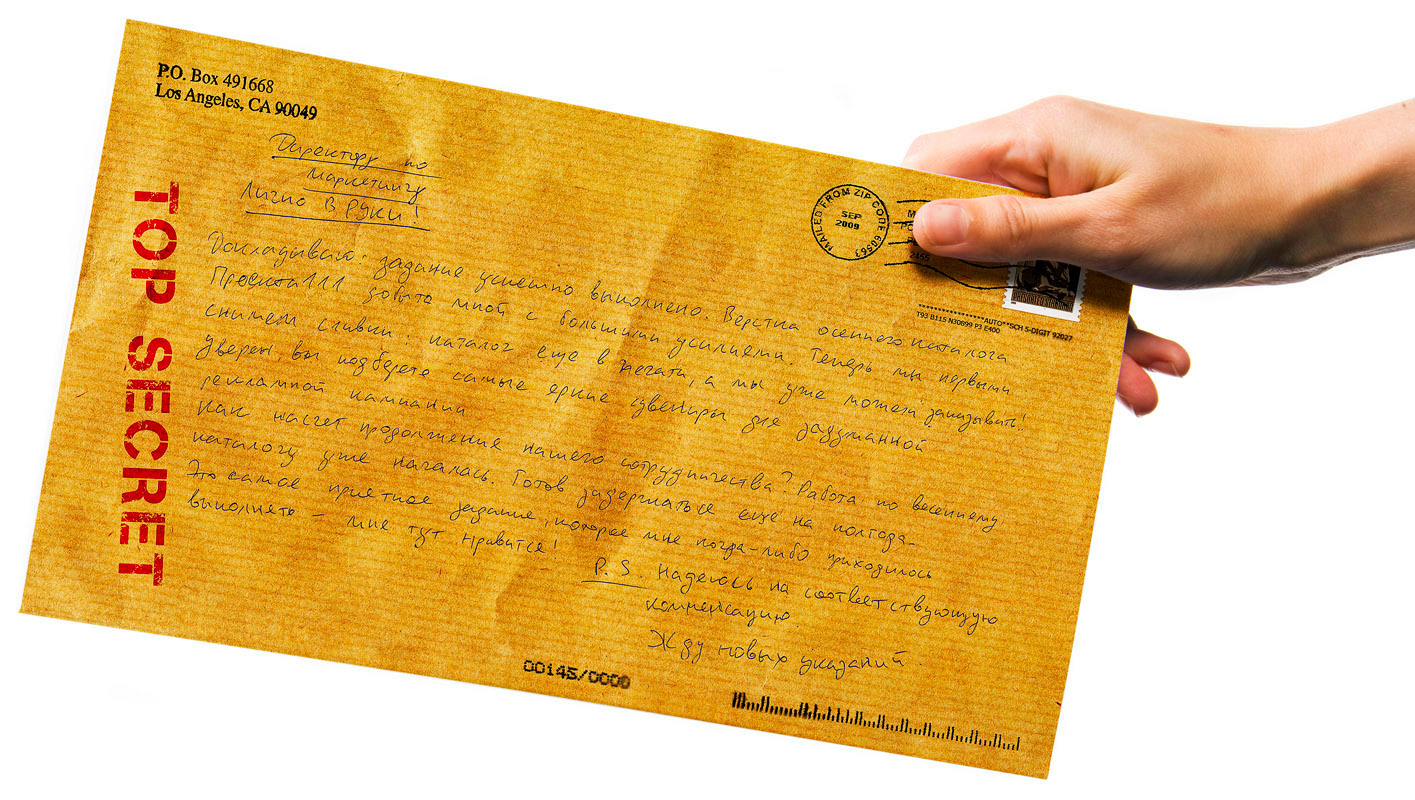 P.O. Box 491668
Los Angeles, CA 90049
Директору по
маркетингу
Лично в руки!
TOP SECRET
MAILED FROM ZIP CODE 60563
SEP
2009
2455
**************AUTO**SCH 5-DIGIT 92027
T93 B115 N30699 P3 E400
Докладываю: задание успешно выполнено. Верстка осеннего каталога
Проекта 111 добыта мной с большими усилиями. Теперь мы первыми
снимем сливки: каталог еще в печати, а мы уже можем заказывать!
Уверен, вы подберете самые яркие сувениры для задуманной
рекламной кампании
Как насчет продолжения нашего сотрудничества? Работа по весеннему
каталогу уже началась. Готов задержаться еще на полгода.
Это самое приятное задание, которое мне когда-либо приходилось
выполнять – мне тут нравится!
P.S. Надеюсь на соответствующую
компенсацию.
Жду новых указаний.
00145/0000